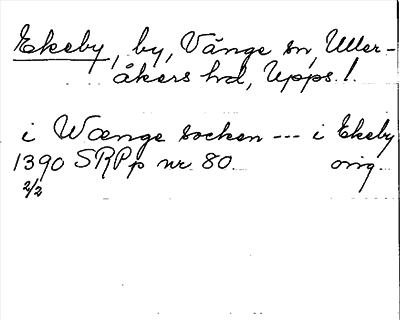 Ekeby, by, Vänge sn, Uller-
åkers hd, Upps. l.
i Wænge socken --- i Ekeby
1390 SRPp nr 80. orig.
2/2